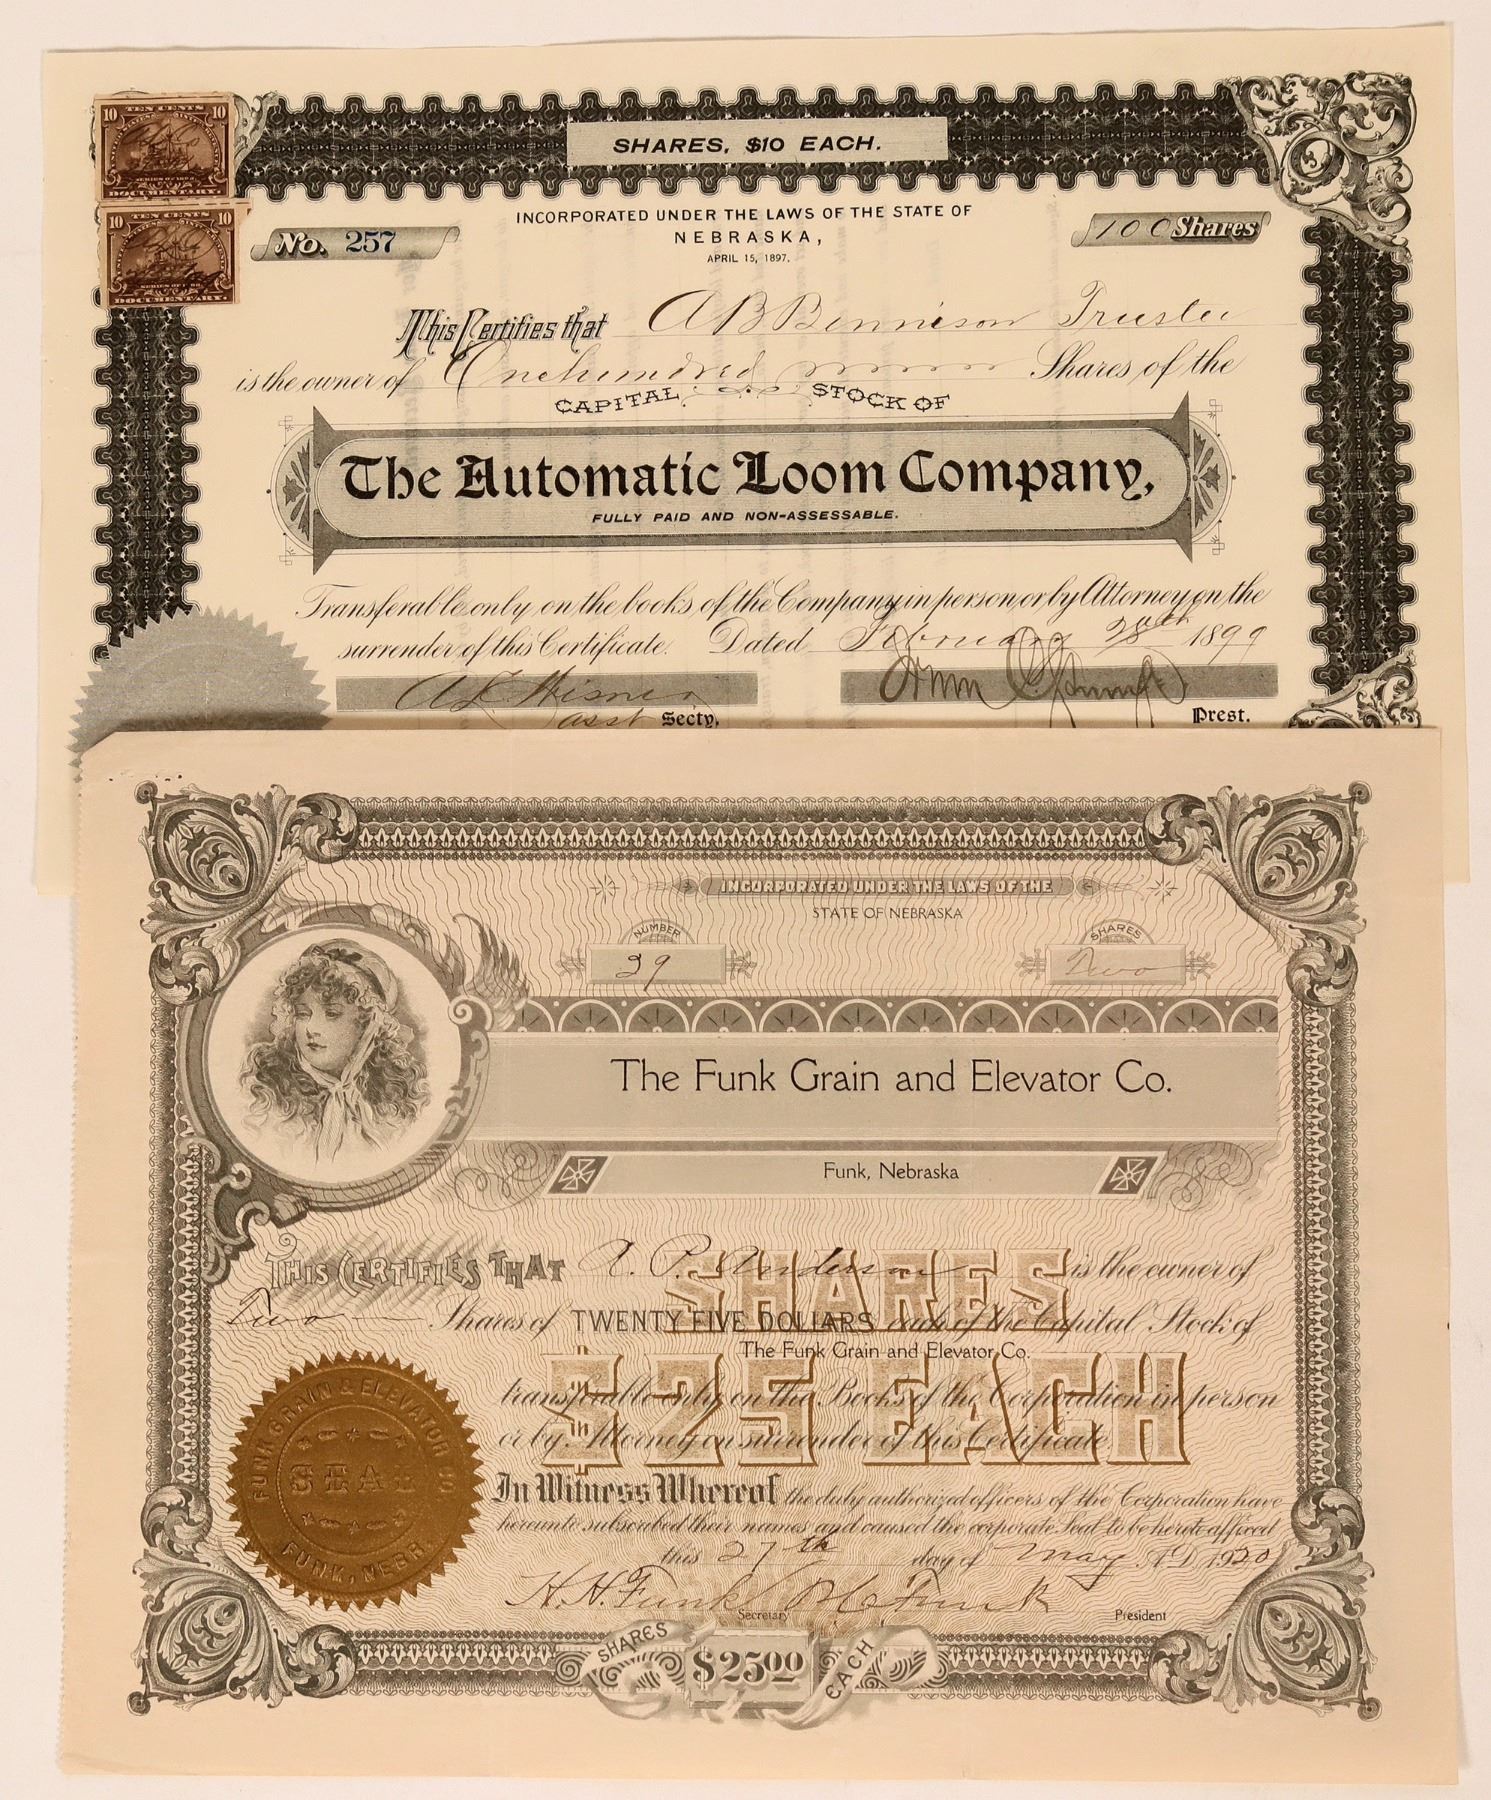 TEN CENTS
10 10
SERIES OF 1898
DOCUMENTARY.
10 TEN CENTS 10
SERIES OF 1898
DOCUMENTARY.
SHARES, $10 EACH.
INCORPORATED UNDER THE LAWS OF THE STATE OF
NEBRASKA,
APRIL 15, 1897.
No. 257
100 Shares
This Certifies that A B Bennison Trustee
is the owner of One hundred Shares of the
CAPITAL STOCK OF
The Automatic Loom Company,
FULLY PAID AND NON-ASSESSABLE.
Transferable only on the books of the Company in person or by Attorney on the
surrender of this Certificate. Dated February 28th 1899
asst Secty. Prest.
INCORPORATED UNDER THE LAWS OF THE
STATE OF NEBRASKA
NUMBER
29
SHARES
Two
The Funk Grain and Elevator Co.
Funk, Nebraska
THIS CERTIFIES THAT A. P. Anderson is the owner of
Two Shares of TWENTY FIVE DOLLARS each of the Capital Stock of
The Funk Grain and Elevator Co.
transferable only on the Books of the Corporation in person
or by Attorney on surrender of this Certificate.
SHARES
$25 EACH
In Witness Whereof the duly authorized officers of the Corporation have
hereunto subscribed their names and caused the corporate Seal to be hereto affixed
this 27th day of May A.D. 1920
H. H. Funk Funk
Secretary President
SHARES $25.00 EACH
FUNK GRAIN & ELEVATOR CO.
SEAL
FUNK, NEBR.